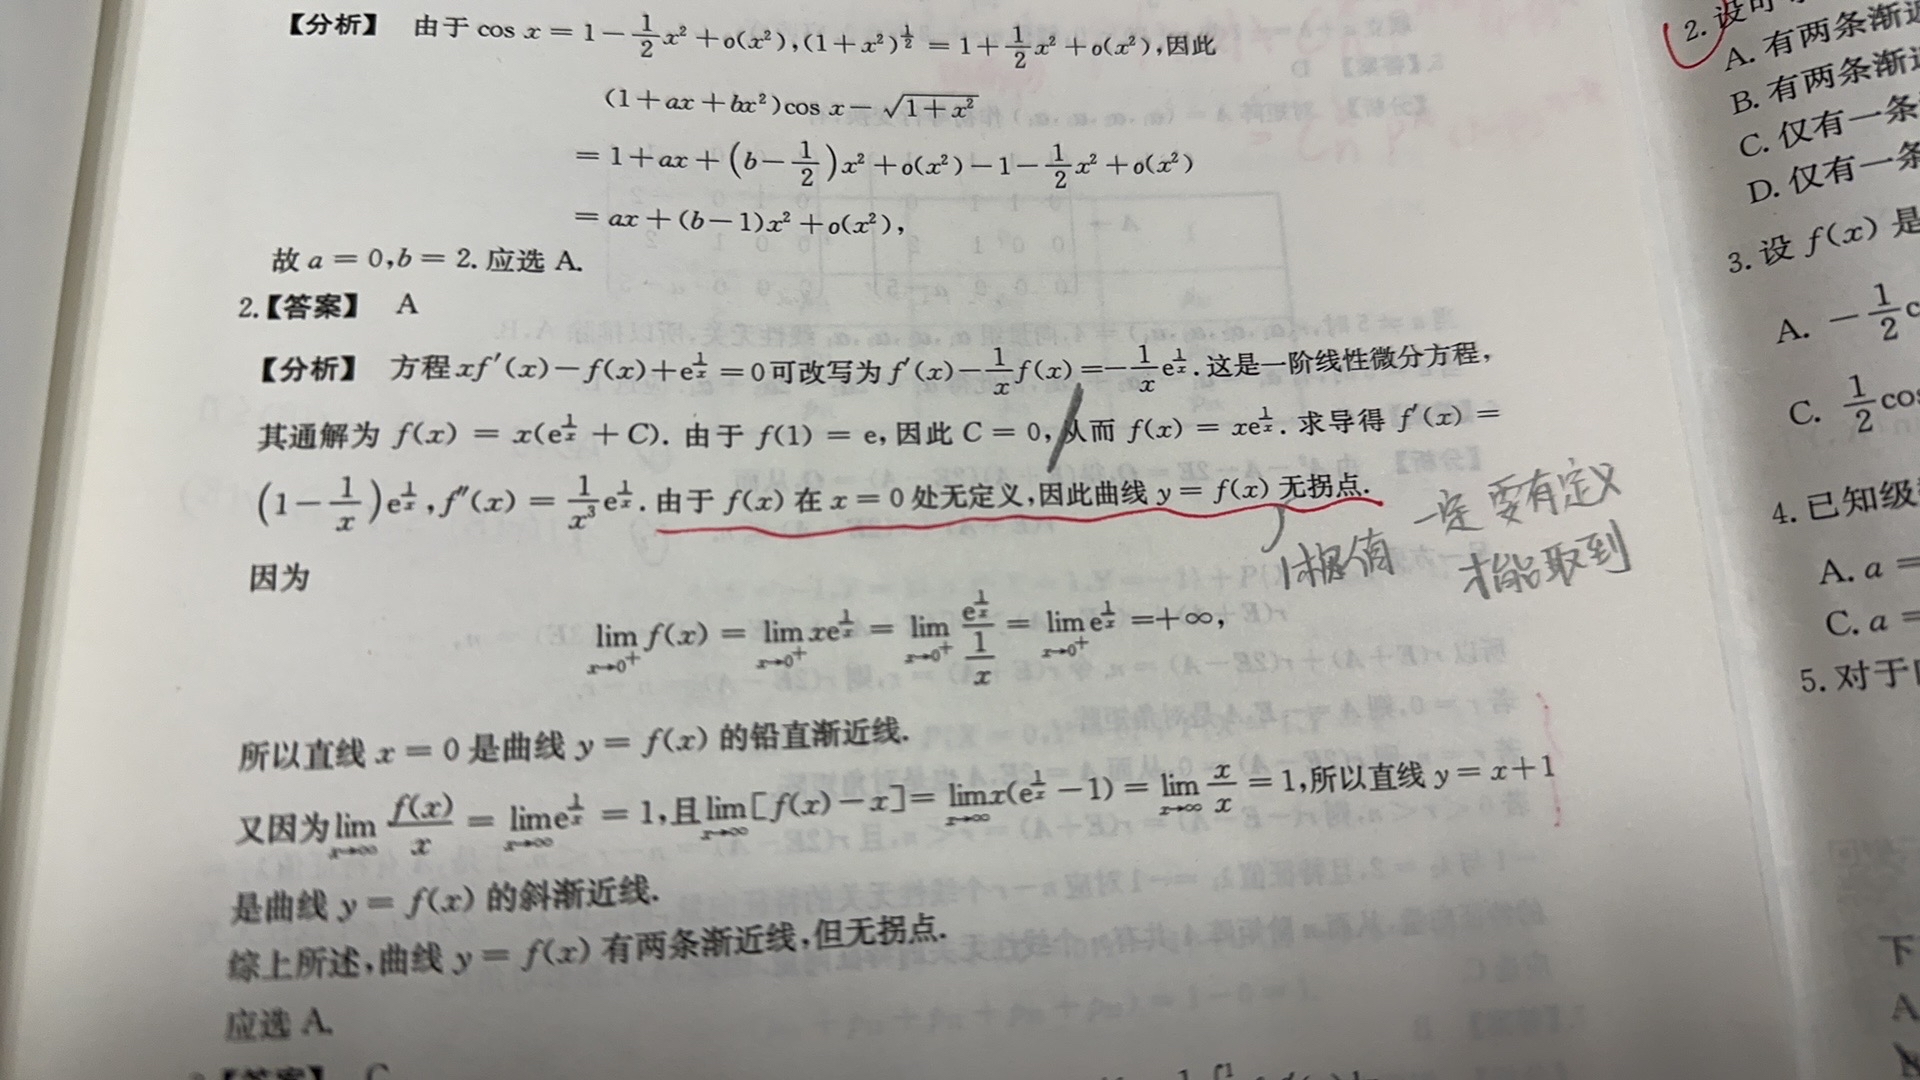 【分析】 由于 cos x = 1 − 1/2 x² + o(x²), (1+x²)^{1/2} = 1 + 1/2 x² + o(x²), 因此
(1+ax+bx²)cos x − √(1+x²)
= 1+ax+(b−1/2)x²+o(x²)−1−1/2 x²+o(x²)
= ax+(b−1)x²+o(x²),
故 a = 0, b = 2. 应选 A.
2.【答案】 A
【分析】 方程 xf′(x)−f(x)+e^{1/x} = 0 可改写为 f′(x)−1/x f(x) = −1/x e^{1/x}. 这是一阶线性微分方程,
其通解为 f(x) = x(e^{1/x} + C). 由于 f(1) = e, 因此 C = 0, 从而 f(x) = xe^{1/x}. 求导得 f′(x) =
(1−1/x)e^{1/x}, f″(x) = 1/x³ e^{1/x}. 由于 f(x) 在 x = 0 处无定义, 因此曲线 y = f(x) 无拐点.
极值 一定要有定义
才能取到
因为
lim_{x→0⁺} f(x) = lim_{x→0⁺} xe^{1/x} = lim_{x→0⁺} e^{1/x}/(1/x) = lim_{x→0⁺} e^{1/x} = +∞,
所以直线 x = 0 是曲线 y = f(x) 的铅直渐近线.
又因为 lim_{x→∞} f(x)/x = lim_{x→∞} e^{1/x} = 1, 且 lim_{x→∞}[f(x)−x] = lim_{x→∞} x(e^{1/x}−1) = lim_{x→∞} x/x = 1, 所以直线 y = x+1
是曲线 y = f(x) 的斜渐近线.
综上所述, 曲线 y = f(x) 有两条渐近线, 但无拐点.
应选 A.
【答案】 C
2. 设
A. 有两条渐近
B. 有两条渐近
C. 仅有一条
D. 仅有一条
3. 设 f(x) 是
A. −1/2 c
C. 1/2 cos
4. 已知级
A. a =
C. a =
5. 对于
下
A